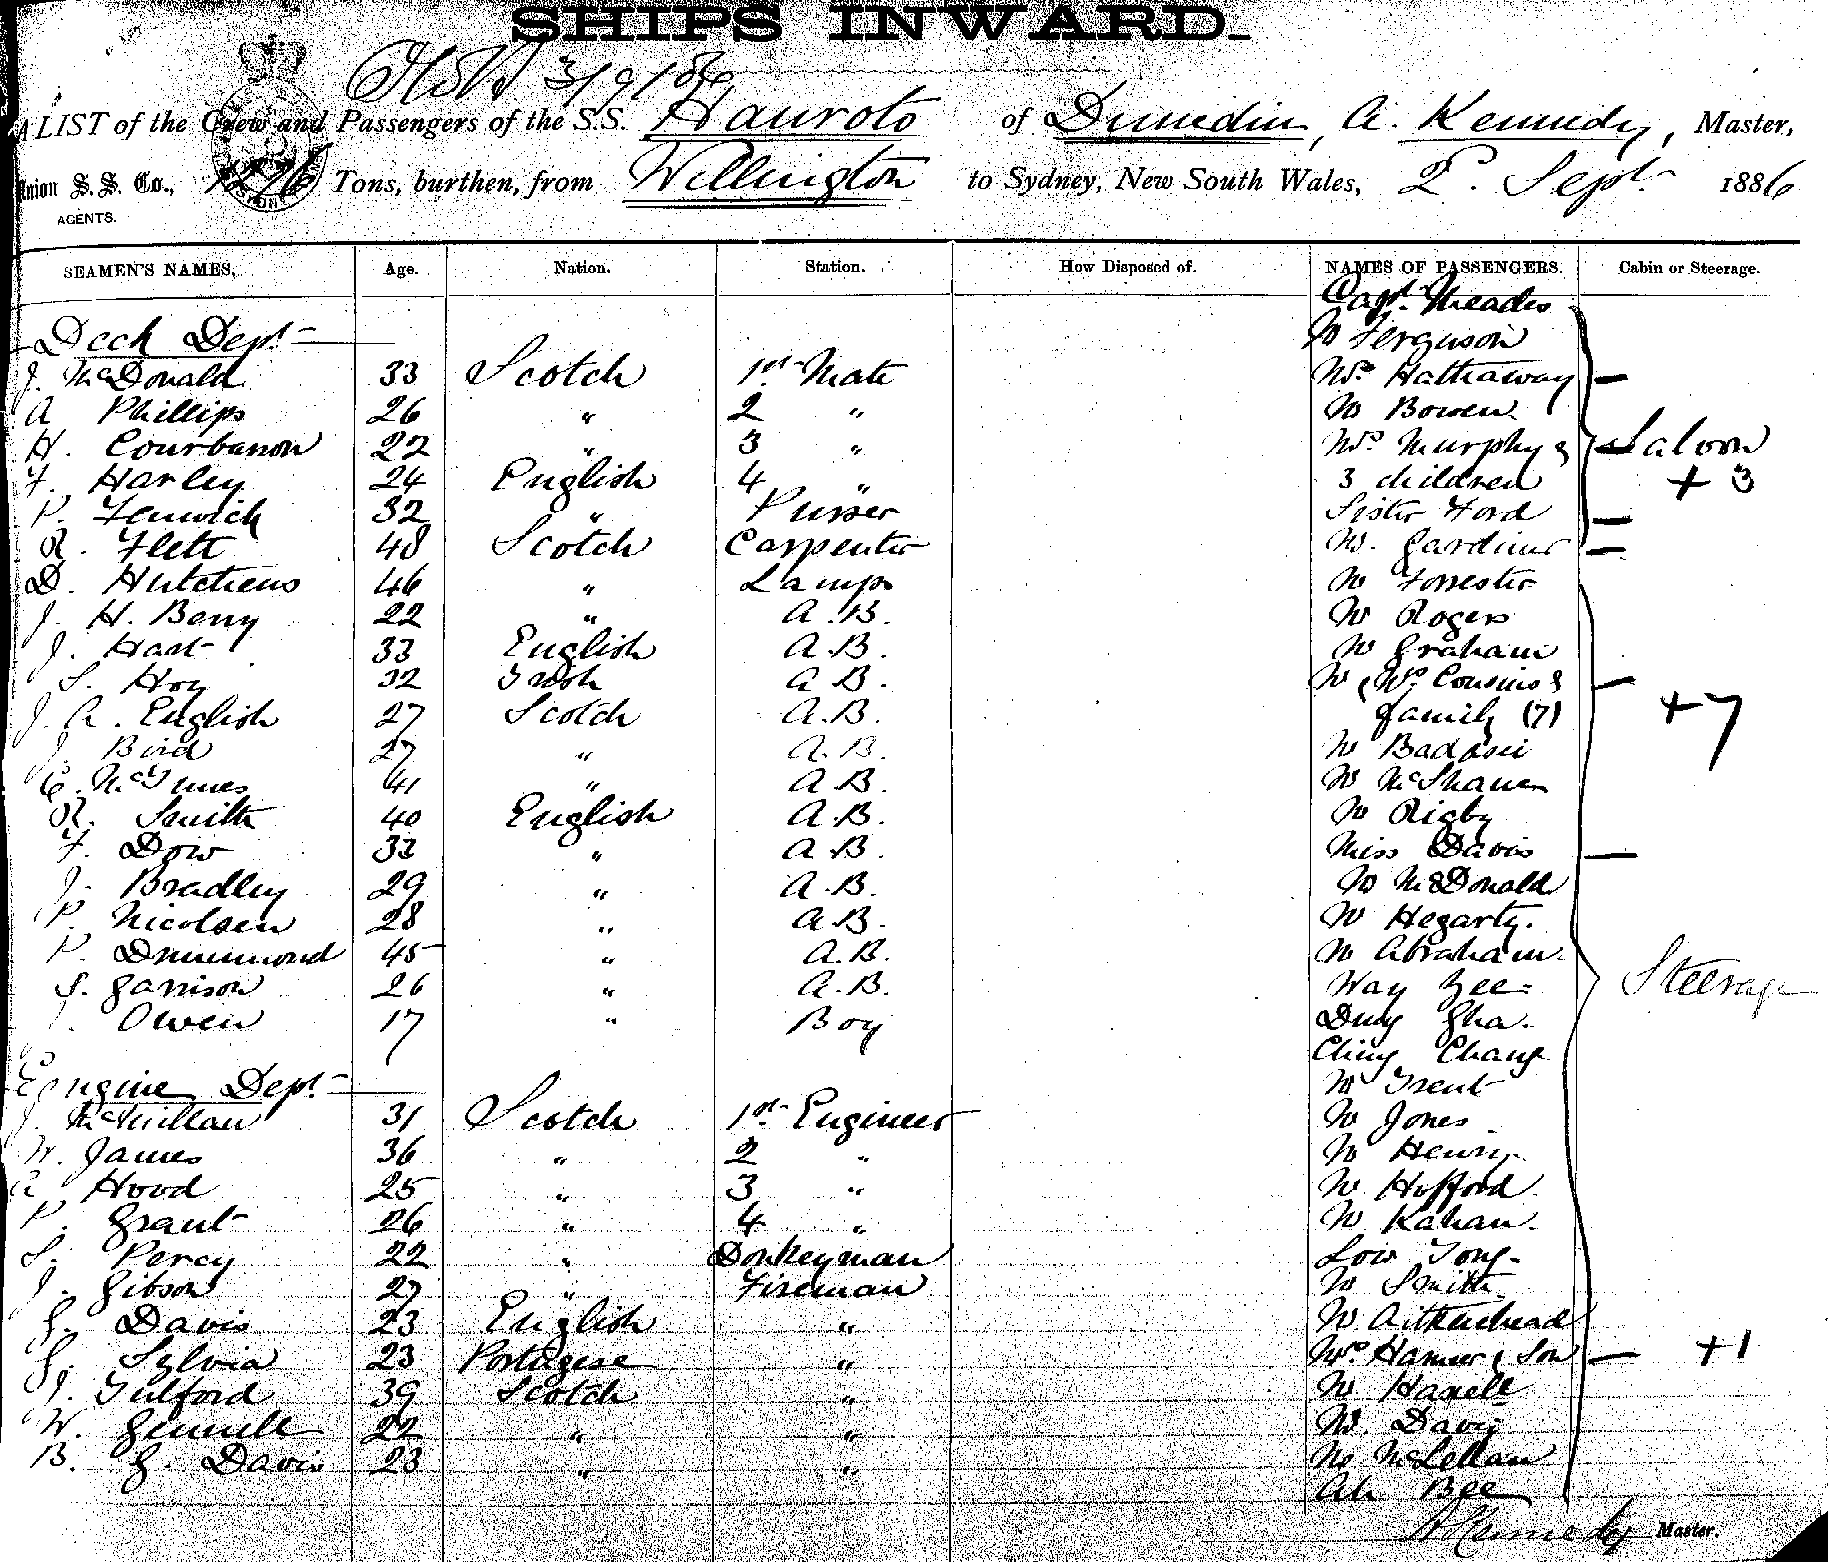 SHIPS INWARD.
3/9/86
A LIST of the Crew and Passengers of the S.S. Hauroto of Dunedin, A. Kennedy, Master,
Union S. S. Co., 1276 Tons, burthen, from Wellington to Sydney, New South Wales, 2d. Sept. 1886
AGENTS.
SEAMEN'S NAMES. Age. Nation. Station. How Disposed of. NAMES OF PASSENGERS. Cabin or Steerage.
Capt. Meades
Deck Dept. Mr Ferguson
J. McDonald 33 Scotch 1st Mate Mrs Hathaway
A Phillips 26 " 2 " Mr Bowen
H. Courbarron 22 " 3 " Mrs Murphy & Saloon
F. Harley 24 English 4 " 3 children + 3
P. Fenwick 32 " Purser Sister Ford
R. Flett 48 Scotch Carpenter M. Gardiner
D. Hutchens 46 " Lamps Mr Forrester
J. H. Berry 22 " A.B. Mr Rogers
J. Hart 33 English A.B. Mr Graham
S. Hoy 32 Irish A B. Mr, Mrs Cousins &
J. A. English 27 Scotch A.B. family (7) +7
J. Boid 27 " A.B. Mr Badosii
C. McInnes 41 " A B. Mr McShane
R. Smith 40 English A.B. Mr Rigby
F. Dow 33 " A.B. Miss Davis
J. Bradley 29 " A.B. Mr McDonald
P. Nicolsen 28 " A.B. Mr Hegarty.
P. Drummond 45 " A.B. Mr Abraham
S. Garrison 26 " A.B. Way Gee Steerage
Owen 17 " Boy Duey Gha.
Ching Chang
Engine Dept. Mr Trent
J. McMillan 31 Scotch 1st Engineer Mr Jones
W. James 36 " 2 " Mr Henry
A Hood 25 " 3 " Mr Hofford
P. Grant 26 " 4 " Mr Kahan.
S. Percy 22 " Donkeyman Low Tong
J. Gibson 27 " Fireman Mr Smith
G. Davis 23 English " Mr Aitkenhead
G. Sylvia 23 Portugese " Mrs Hamer & Son +1
J. Tulford 39 Scotch " Mr Hanell
W. Gemmell 22 " " Mr. Davis
B. G. Davis 23 " " Mr McLellan
Ah Bee
A Kennedy Master.